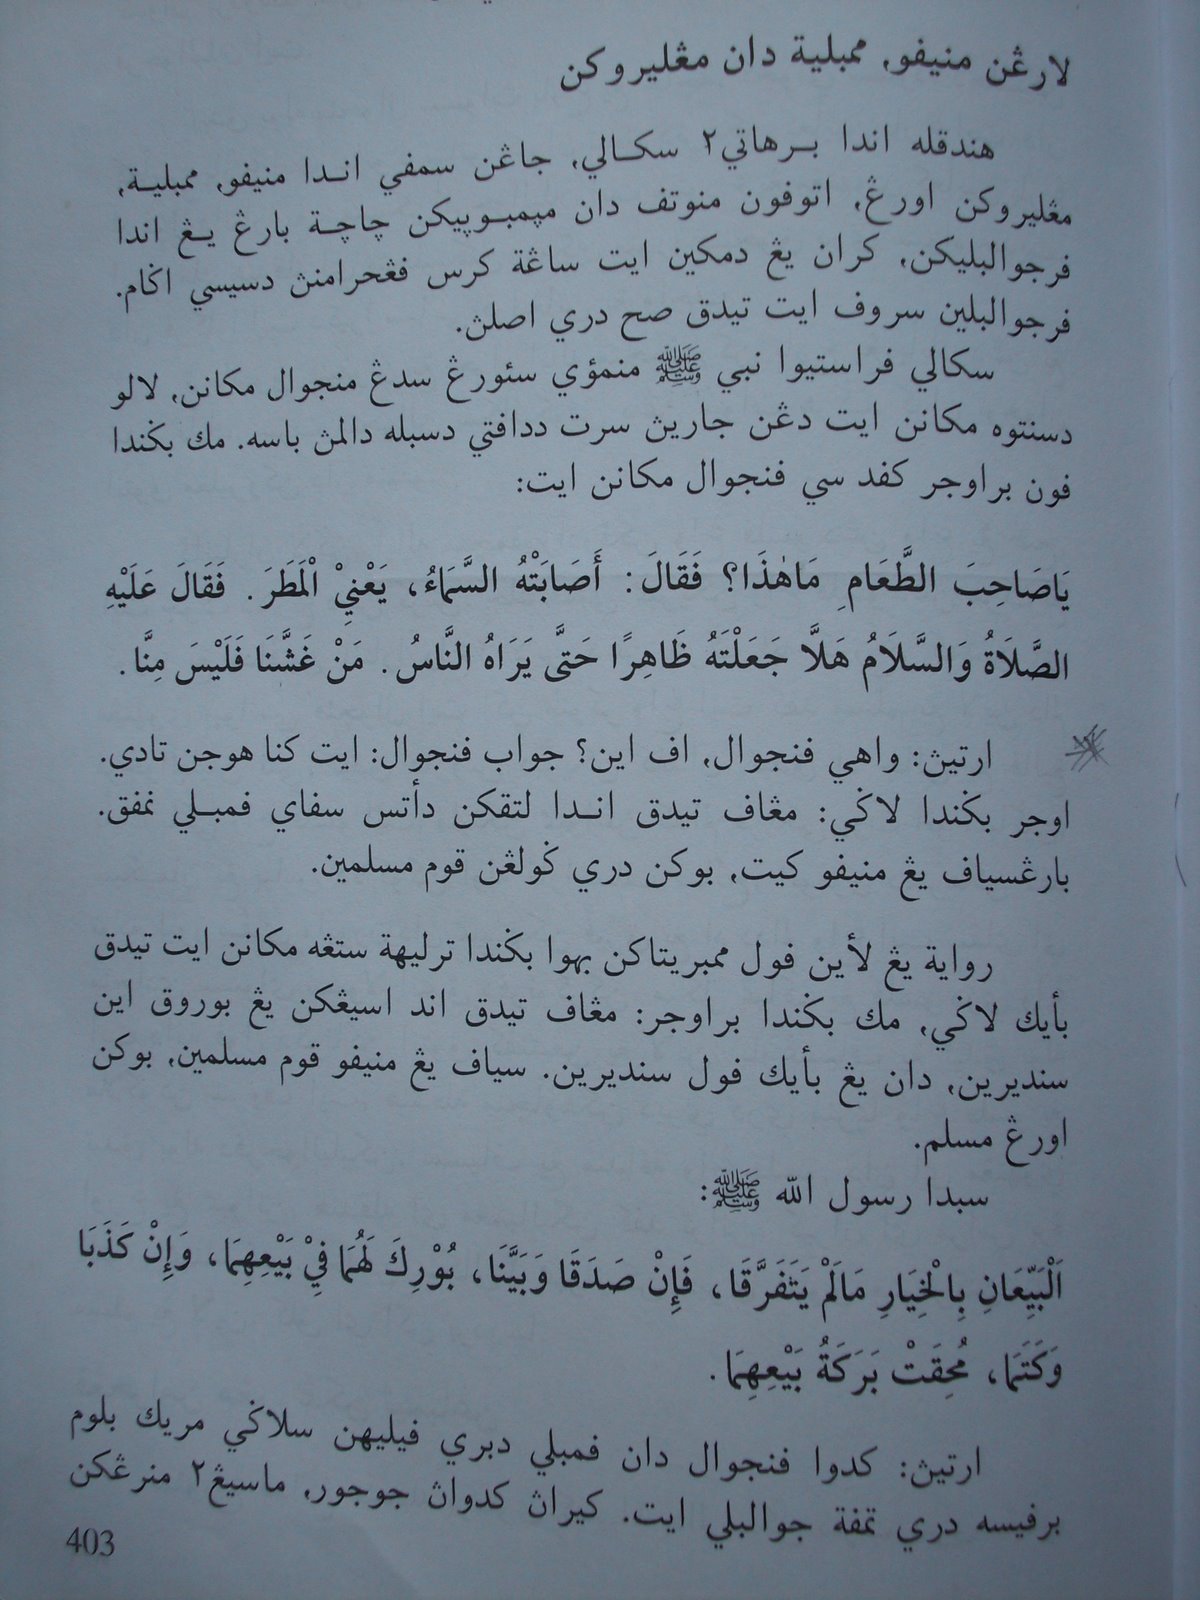 لارڠن منيفو, ممبلية دان مڠليروكن
هندقله اندا برهاتي٢ سكالي, جاڠن سمفي اندا منيفو, ممبلية,
مڠليروكن اورڠ, اتوفون منوتف دان مپمبوپيكن چاچة بارڠ يڠ اندا
فرجوالبليكن, كران يڠ دمكين ايت ساڠة كرس فڠحرامنڽ دسيسي اݢام.
فرجوالبلين سروف ايت تيدق صح دري اصلڽ.
سكالي فراستيوا نبي ﷺ منمؤي سئورڠ سدڠ منجوال مكانن, لالو
دسنتوه مكانن ايت دڠن جاريڽ سرت ددافتي دسبله دالمڽ باسه. مك بݢندا
فون براوجر كفد سي فنجوال مكانن ايت:
يَاصَاحِبَ الطَّعَامِ مَاهٰذَا؟ فَقَالَ: أَصَابَتْهُ السَّمَاءُ، يَعْنِيْ الْمَطَرَ. فَقَالَ عَلَيْهِ
الصَّلَاةُ وَالسَّلَامُ هَلاَّ جَعَلْتَهُ ظَاهِرًا حَتَّى يَرَاهُ النَّاسُ. مَنْ غَشَّنَا فَلَيْسَ مِنَّا.
ارتيڽ: واهي فنجوال, اف اين؟ جواب فنجوال: ايت كنا هوجن تادي.
اوجر بݢندا لاݢي: مڠاف تيدق اندا لتقكن دأتس سفاي فمبلي نمفق.
بارڠسياف يڠ منيفو كيت, بوكن دري ݢولڠن قوم مسلمين.
رواية يڠ لأين فول ممبريتاكن بهوا بݢندا ترليهة ستڠه مكانن ايت تيدق
بأيك لاݢي, مك بݢندا براوجر: مڠاف تيدق اند اسيڠكن يڠ بوروق اين
سنديرين, دان يڠ بأيك فول سنديرين. سياف يڠ منيفو قوم مسلمين, بوكن
اورڠ مسلم.
سبدا رسول الله ﷺ:
اَلْبَيِّعَانِ بِالْخِيَارِ مَالَمْ يَتَفَرَّقَا، فَإِنْ صَدَقَا وَبَيَّنَا، بُوْرِكَ لَهُمَا فِيْ بَيْعِهِمَا، وَإِنْ كَذَبَا
وَكَتَمَا، مُحِقَتْ بَرَكَةُ بَيْعِهِمَا.
ارتيڽ: كدوا فنجوال دان فمبلي دبري فيليهن سلاݢي مريك بلوم
برفيسه دري تمفة جوالبلي ايت. كيراڽ كدواڽ جوجور, ماسيڠ٢ منرڠكن
403